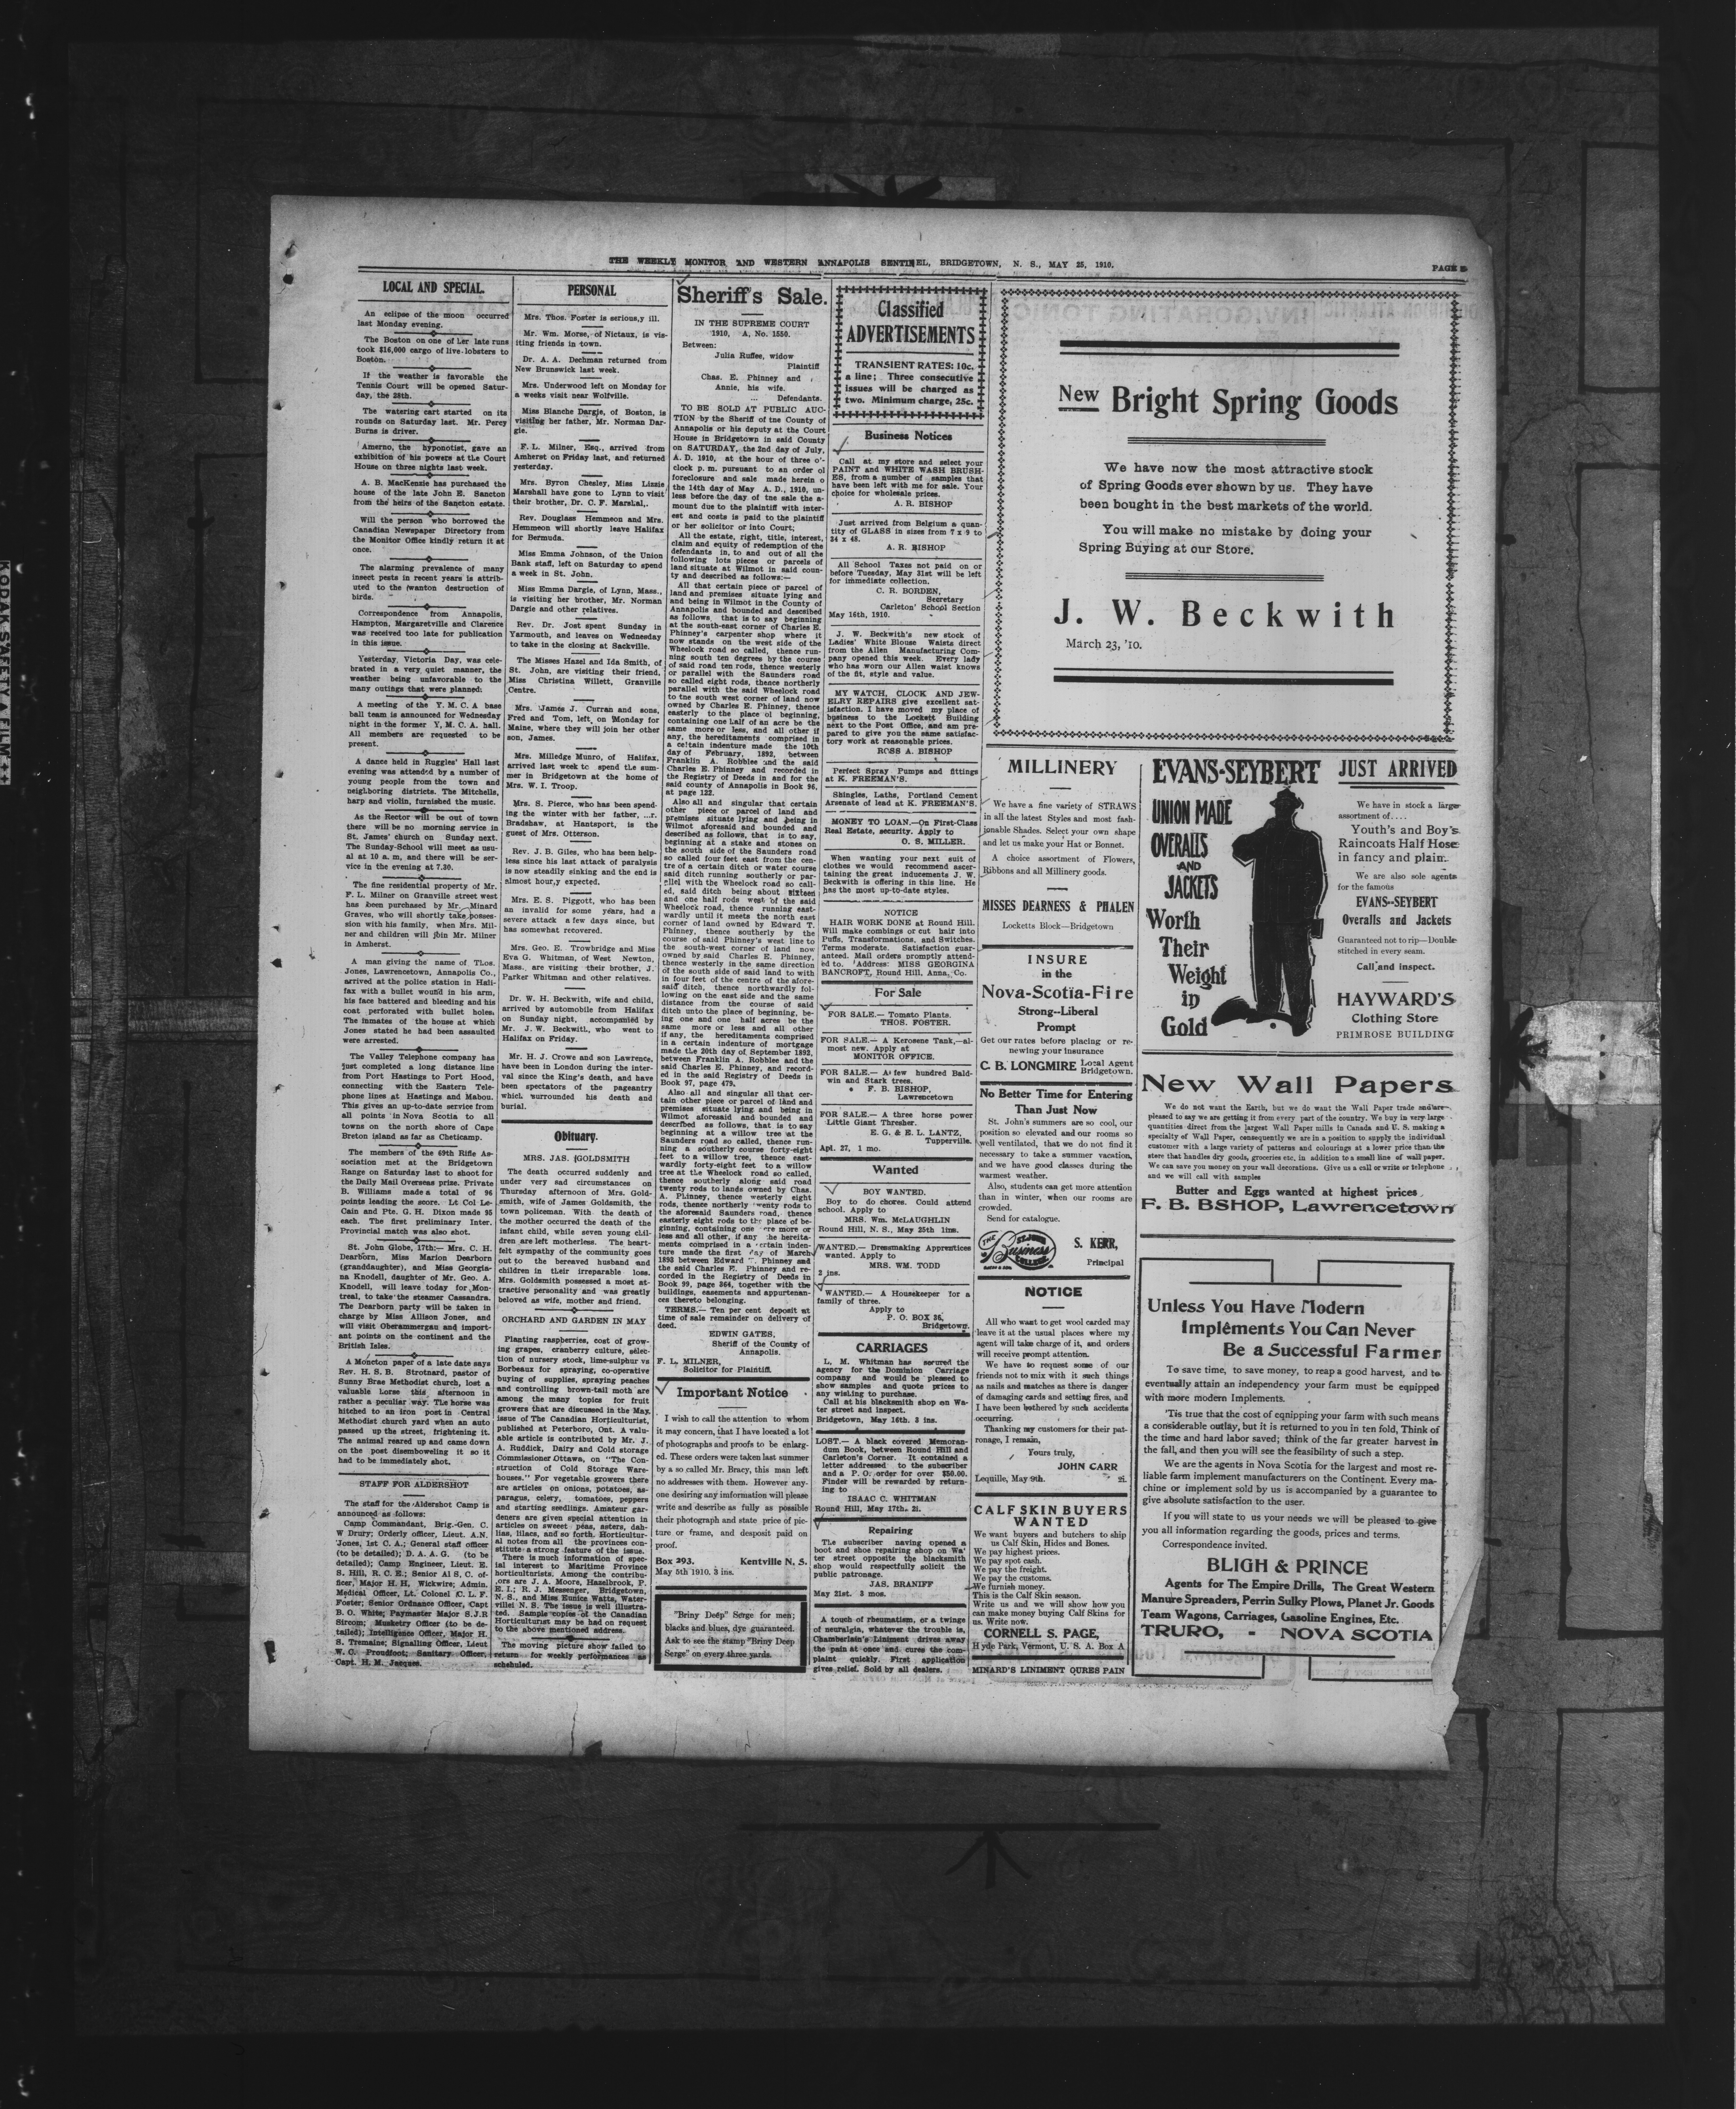 THE WEEKLY MONITOR AND WESTERN ANNAPOLIS SENTINEL, BRIDGETOWN, N. S., MAY 25, 1910.
PAGE 5
LOCAL AND SPECIAL.
An eclipse of the moon occurred
last Monday evening.
The Boston on one of her late runs
took $16,000 cargo of live lobsters to
Boston.
If the weather is favorable the
Tennis Court will be opened Satur-
day, the 28th.
The watering cart started on its
rounds on Saturday last. Mr. Percy
Burns is driver.
Amerno, the hyponotist, gave an
exhibition of his powers at the Court
House on three nights last week.
A. B. MacKenzie has purchased the
house of the late John E. Sancton
from the heirs of the Sancton estate.
Will the person who borrowed the
Canadian Newspaper Directory from
the Monitor Office kindly return it at
once.
The alarming prevalence of many
insect pests in recent years is attrib-
uted to the wanton destruction of
birds.
Correspondence from Annapolis,
Hampton, Margaretville and Clarence
was received too late for publication
in this issue.
Yesterday, Victoria Day, was cele-
brated in a very quiet manner, the
weather being unfavorable to the
many outings that were planned.
A meeting of the Y. M. C. A base
ball team is announced for Wednesday
night in the former Y. M. C. A. hall.
All members are requested to be
present.
A dance held in Ruggles' Hall last
evening was attended by a number of
young people from the town and
neighboring districts. The Mitchells,
harp and violin, furnished the music.
As the Rector will be out of town
there will be no morning service in
St. James' church on Sunday next.
The Sunday-School will meet as usu-
al at 10 a. m, and there will be ser-
vice in the evening at 7.30.
The fine residential property of Mr.
F. L. Milner on Granville street west
has been purchased by Mr. Minard
Graves, who will shortly take posses-
sion with his family, when Mrs. Mil-
ner and children will join Mr. Milner
in Amherst.
A man giving the name of Thos.
Jones, Lawrencetown, Annapolis Co.,
arrived at the police station in Hali-
fax with a bullet wound in his arm,
his face battered and bleeding and his
coat perforated with bullet holes.
The inmates of the house at which
Jones stated he had been assaulted
were arrested.
The Valley Telephone company has
just completed a long distance line
from Port Hastings to Port Hood,
connecting with the Eastern Tele-
phone lines at Hastings and Mabou.
This gives an up-to-date service from
all points in Nova Scotia to all
towns on the north shore of Cape
Breton island as far as Cheticamp.
The members of the 69th Rifle As-
sociation met at the Bridgetown
Range on Saturday last to shoot for
the Daily Mail Overseas prize. Private
B. Williams made a total of 96
points leading the score. Lt Col Le-
Cain and Pte. G. H. Dixon made 95
each. The first preliminary Inter.
Provincial match was also shot.
St. John Globe, 17th:— Mrs. C. H.
Dearborn, Miss Marion Dearborn
(granddaughter), and Miss Georgia-
na Knodell, daughter of Mr. Geo. A.
Knodell, will leave today for Mon-
treal, to take the steamer Cassandra.
The Dearborn party will be taken in
charge by Miss Allison Jones, and
will visit Oberammergau and import-
ant points on the continent and the
British Isles.
A Moncton paper of a late date says
Rev. H. S. B. Strotnard, pastor of
Sunny Brae Methodist church, lost a
valuable horse this afternoon in
rather a peculiar way. The horse was
hitched to an iron post in Central
Methodist church yard when an auto
passed up the street, frightening it.
The animal reared up and came down
on the post disemboweling it so it
had to be immediately shot.
STAFF FOR ALDERSHOT
The staff for the Aldershot Camp is
announced as follows:
Camp Commandant, Brig.-Gen. C.
W Drury; Orderly officer, Lieut. A.N.
Jones, 1st C. A.; General staff officer
(to be detailed); D. A. A. G. (to be
detailed); Camp Engineer, Lieut. E.
S. Hill, R. C. E.; Senior Al S, C. of-
ficer, Major H. H. Wickwire; Admin.
Medical Officer, Lt. Colonel C. L. F.
Foster; Senior Ordnance Officer, Capt
B. O. White; Paymaster Major S.J.R
Sircom; Musketry Officer (to be de-
tailed); Intelligence Officer, Major H.
S. Tremaine; Signalling Officer, Lieut
W. C. Proudfoot; Sanitary Officer,
Capt. H. M. Jacques.
PERSONAL
Mrs. Thos. Foster is serious,y ill.
Mr. Wm. Morse, of Nictaux, is vis-
iting friends in town.
Dr. A. A. Dechman returned from
New Brunswick last week.
Mrs. Underwood left on Monday for
a weeks visit near Wolfville.
Miss Blanche Dargie, of Boston, is
visiting her father, Mr. Norman Dar-
gie.
F. L. Milner, Esq., arrived from
Amherst on Friday last, and returned
yesterday.
Mrs. Byron Chesley, Miss Lizzie
Marshall have gone to Lynn to visit
their brother, Dr. C. F. Marshal,.
Rev. Douglass Hemmeon and Mrs.
Hemmeon will shortly leave Halifax
for Bermuda.
Miss Emma Johnson, of the Union
Bank staff, left on Saturday to spend
a week in St. John.
Miss Emma Dargie, of Lynn, Mass.,
is visiting her brother, Mr. Norman
Dargie and other relatives.
Rev. Dr. Jost spent Sunday in
Yarmouth, and leaves on Wednesday
to take in the closing at Sackville.
The Misses Hazel and Ida Smith, of
St. John, are visiting their friend,
Miss Christina Willett, Granville
Centre.
Mrs. James J. Curran and sons,
Fred and Tom, left on Monday for
Maine, where they will join her other
son, James.
Mrs. Milledge Munro, of Halifax,
arrived last week to spend the sum-
mer in Bridgetown at the home of
Mrs. W. I. Troop.
Mrs. S. Pierce, who has been spend-
ing the winter with her father,
Bradshaw, at Hantsport, is the
guest of Mrs. Otterson.
Rev. J. B. Giles, who has been help-
less since his last attack of paralysis
is now steadily sinking and the end is
almost hour,y expected.
Mrs. E. S. Piggott, who has been
an invalid for some years, had a
severe attack a few days since, but
has somewhat recovered.
Mrs. Geo. E. Trowbridge and Miss
Eva G. Whitman, of West Newton,
Mass., are visiting their brother, J.
Parker Whitman and other relatives.
Dr. W. H. Beckwith, wife and child,
arrived by automobile from Halifax
on Sunday night, accompanied by
Mr. J. W. Beckwith, who went to
Halifax on Friday.
Mr. H. J. Crowe and son Lawrence,
have been in London during the inter-
val since the King's death, and have
been spectators of the pageantry
which surrounded his death and
burial.
Obituary.
MRS. JAS. GOLDSMITH
The death occurred suddenly and
under very sad circumstances on
Thursday afternoon of Mrs. Gold-
smith, wife of James Goldsmith, the
town policeman. With the death of
the mother occurred the death of the
infant child, while seven young chil-
dren are left motherless. The heart-
felt sympathy of the community goes
out to the bereaved husband and
children in their irreparable loss.
Mrs. Goldsmith possessed a most at-
tractive personality and was greatly
beloved as wife, mother and friend.
ORCHARD AND GARDEN IN MAY
Planting raspberries, cost of grow-
ing grapes, cranberry culture, selec-
tion of nursery stock, lime-sulphur vs
Borbeaux for spraying, co-operative
buying of supplies, spraying peaches
and controlling brown-tail moth are
among the many topics for fruit
growers that are discussed in the May
issue of The Canadian Horticulturist,
published at Peterboro, Ont. A valu-
able article is contributed by Mr. J.
A. Ruddick, Dairy and Cold storage
Commissioner Ottawa, on "The Con-
struction of Cold Storage Ware-
houses." For vegetable growers there
are articles on onions, potatoes, as-
paragus, celery, tomatoes, peppers
and starting seedlings. Amateur gar-
deners are given special attention in
articles on sweeet peas, asters, dah-
lias, lilacs, and so forth. Horticultur-
al notes from all the provinces con-
stitute a strong feature of the issue.
There is much information of spec-
ial interest to Maritime Province
horticulturists. Among the contribu-
ors are J. A. Moore, Hazelbrook, P.
E. I.; R. J. Messenger, Bridgetown,
N. S., and Miss Eunice Watts, Water-
ville N. S. The issue is well illustra-
ted. Sample copies of the Canadian
Horticulturist may be had on request
to the above mentioned address.
The moving picture show failed to
return for weekly performances as
scheduled.
Sheriff's Sale.
IN THE SUPREME COURT
1910, A, No. 1550.
Between:
Julia Ruffee, widow
Plaintiff
Chas. E. Phinney and
Annie, his wife.
Defendants.
TO BE SOLD AT PUBLIC AUC-
TION by the Sheriff of the County of
Annapolis or his deputy at the Court
House in Bridgetown in said County
on SATURDAY, the 2nd day of July,
A. D. 1910, at the hour of three o'-
clock p. m. pursuant to an order of
foreclosure and sale made herein o
the 14th day of May A. D., 1910, un-
less before the day of the sale the a-
mount due to the plaintiff with inter-
est and costs is paid to the plaintiff
or her solicitor or into Court;
All the estate, right, title, interest,
claim and equity of redemption of the
defendants in, to and out of all the
following lots pieces or parcels of
land situate at Wilmot in said coun-
ty and described as follows:—
All that certain piece or parcel of
land and premises situate lying and
and being in Wilmot in the County of
Annapolis and bounded and described
as follows, that is to say beginning
at the south-east corner of Charles E.
Phinney's carpenter shop where it
now stands on the west side of the
Wheelock road so called, thence run-
ning south ten degrees by the course
of said road ten rods, thence westerly
or parallel with the Saunders road
so called eight rods, thence northerly
parallel with the said Wheelock road
to the south west corner of land now
owned by Charles E. Phinney, thence
easterly to the place of beginning,
containing one half of an acre be the
same more or less, and all other if
any, the hereditaments comprised in
a certain indenture made the 10th
day of February, 1892, between
Franklin A. Robblee and the said
Charles E. Phinney and recorded in
the Registry of Deeds in and for the
said county of Annapolis in Book 96,
at page 122.
Also all and singular that certain
other piece or parcel of land and
premises situate lying and being in
Wilmot aforesaid and bounded and
described as follows, that is to say,
beginning at a stake and stones on
the south side of the Saunders road
so called four feet east from the cen-
tre of a certain ditch or water course
said ditch running southerly or par-
ellel with the Wheelock road so call-
ed, said ditch being about sixteen
and one half rods west of the said
Wheelock road, thence running east-
wardly until it meets the north east
corner of land owned by Edward T.
Phinney, thence southerly by the
course of said Phinney's west line to
the south-west corner of land now
owned by said Charles E. Phinney,
thence westerly in the same direction
of the south side of said land to with
in four feet of the centre of the afore-
said ditch, thence northwardly fol-
lowing on the east side and the same
distance from the course of said
ditch unto the place of beginning, be-
ing one and one half acres be the
same more or less and all other
if any, the hereditaments comprised
in a certain indenture of mortgage
made the 20th day of September 1892,
between Franklin A. Robblee and the
said Charles E. Phinney, and record-
ed in the said Registry of Deeds in
Book 97, page 479.
Also all and singular all that cer-
tain other piece or parcel of land and
premises situate lying and being in
Wilmot aforesaid and bounded and
described as follows, that is to say
beginning at a willow tree at the
Saunders road so called, thence run-
ning a southerly course forty-eight
feet to a willow tree, thence east-
wardly forty-eight feet to a willow
tree at the Wheelock road so called,
thence southerly along said road
twenty rods to lands owned by Chas.
A. Phinney, thence westerly eight
rods, thence northerly twenty rods to
the aforesaid Saunders road, thence
easterly eight rods to the place of be-
ginning, containing one acre more or
less and all other, if any the heredita-
ments comprised in a certain inden-
ture made the first day of March
1893 between Edward Phinney and
the said Charles E. Phinney and re-
corded in the Registry of Deeds in
Book 99, page 364, together with the
buildings, easements and appurtenan-
ces thereto belonging.
TERMS.— Ten per cent deposit at
time of sale remainder on delivery of
deed.
EDWIN GATES,
Sheriff of the County of
Annapolis.
F. L. MILNER,
Solicitor for Plaintiff.
Important Notice
I wish to call the attention to whom
it may concern, that I have located a lot
of photographs and proofs to be enlarg-
ed. These orders were taken last summer
by a so called Mr. Bracy, this man left
no addresses with them. However any-
one desiring any imformation will please
write and describe as fully as possible
their photograph and state price of pic-
ture or frame, and desposit paid on
proof.
Box 293. Kentville N. S.
May 5th 1910. 3 ins.
"Briny Deep" Serge for men;
blacks and blues, dye guaranteed.
Ask to see the stamp "Briny Deep
Serge" on every three yards.
Classified
ADVERTISEMENTS
TRANSIENT RATES: 10c.
a line; Three consecutive
issues will be charged as
two. Minimum charge, 25c.
Business Notices
Call at my store and select your
PAINT and WHITE WASH BRUSH-
ES, from a number of samples that
have been left with me for sale. Your
choice for wholesale prices.
A. R. BISHOP
Just arrived from Belgium a quan-
tity of GLASS in sizes from 7 x 9 to
34 x 48.
A. R. BISHOP
All School Taxes not paid on or
before Tuesday, May 31st will be left
for immediate collection.
C. R. BORDEN,
Secretary
Carleton' School Section
May 16th, 1910.
J. W. Beckwith's new stock of
Ladies' White Blouse Waists direct
from the Allen Manufacturing Com-
pany opened this week. Every lady
who has worn our Allen waist knows
of the fit, style and value.
MY WATCH, CLOCK AND JEW-
ELRY REPAIRS give excellent sat-
isfaction. I have moved my place of
business to the Lockett Building
next to the Post Office, and am pre-
pared to give you the same satisfac-
tory work at reasonable prices.
ROSS A. BISHOP
Perfect Spray Pumps and fittings
at K. FREEMAN'S.
Shingles, Laths, Portland Cement
Arsenate of lead at K. FREEMAN'S.
MONEY TO LOAN.—On First-Class
Real Estate, security. Apply to
O. S. MILLER.
When wanting your next suit of
clothes we would recommend ascer-
taining the great inducements J. W.
Beckwith is offering in this line. He
has the most up-to-date styles.
NOTICE
HAIR WORK DONE at Round Hill.
Will make combings or cut hair into
Puffs, Transformations, and Switches.
Terms moderate. Satisfaction guar-
anteed. Mail orders promptly attend-
ed to. Address: MISS GEORGINA
BANCROFT, Round Hill, Anna, Co.
For Sale
FOR SALE.— Tomato Plants.
THOS. FOSTER.
FOR SALE.— A Kerosene Tank,—al-
most new. Apply at
MONITOR OFFICE.
FOR SALE.— A few hundred Bald-
win and Stark trees.
F. B. BISHOP,
Lawrencetown
FOR SALE.— A three horse power
Little Giant Thresher.
E. G. & E. L. LANTZ,
Tupperville.
Apl. 27, 1 mo.
Wanted
BOY WANTED.
Boy to do chores. Could attend
school. Apply to
MRS. Wm. McLAUGHLIN
Round Hill, N. S., May 25th 1ins.
WANTED.— Dressmaking Apprentices
wanted. Apply to
MRS. WM. TODD
2 ins.
WANTED.— A Housekeeper for a
family of three.
Apply to
P. O. BOX 36,
Bridgetown.
CARRIAGES
L. M. Whitman has secured the
agency for the Dominion Carriage
company and would be pleased to
show samples and quote prices to
any wishing to purchase.
Call at his blacksmith shop on Wa-
ter street and inspect.
Bridgetown, May 16th. 3 ins.
LOST.— A black covered Memoran-
dum Book, between Round Hill and
Carleton's Corner. It contained a
letter addressed to the subscriber
and a P. O. order for over $50.00.
Finder will be rewarded by return-
ing to
ISAAC C. WHITMAN
Round Hill, May 17th. 2i.
Repairing
The subscriber having opened a
boot and shoe repairing shop on Wa-
ter street opposite the blacksmith
shop would respectfully solicit the
public patronage.
JAS. BRANIFF
May 21st. 3 mos.
A touch of rheumatism, or a twinge
of neuralgia, whatever the trouble is,
Chamberlain's Liniment drives away
the pain at once and cures the com-
plaint quickly. First application
gives relief. Sold by all dealers.
New Bright Spring Goods
We have now the most attractive stock
of Spring Goods ever shown by us. They have
been bought in the best markets of the world.
You will make no mistake by doing your
Spring Buying at our Store.
J. W. Beckwith
March 23, '10.
MILLINERY
We have a fine variety of STRAWS
in all the latest Styles and most fash-
ionable Shades. Select your own shape
and let us make your Hat or Bonnet.
A choice assortment of Flowers,
Ribbons and all Millinery goods.
MISSES DEARNESS & PHALEN
Locketts Block—Bridgetown
INSURE
in the
Nova-Scotia-Fire
Strong--Liberal
Prompt
Get our rates before placing or re-
newing your insurance
C. B. LONGMIRE Local Agent
Bridgetown.
No Better Time for Entering
Than Just Now
St. John's summers are so cool, our
position so elevated and our rooms so
well ventilated, that we do not find it
necessary to take a summer vacation,
and we have good classes during the
warmest weather.
Also, students can get more attention
than in winter, when our rooms are
crowded.
Send for catalogue.
THE
ST. JOHN
Business
COLLEGE
S. KERR,
Principal
NOTICE
All who want to get wool carded may
leave it at the usual places where my
agent will take charge of it, and orders
will receive prompt attention.
We have to request some of our
friends not to mix with it such things
as nails and matches as there is danger
of damaging cards and setting fires, and
I have been bothered by such accidents
occurring.
Thanking my customers for their pat-
ronage, I remain,
Yours truly,
JOHN CARR
Lequille, May 9th. 2i.
CALF SKIN BUYERS
WANTED
We want buyers and butchers to ship
us Calf Skin, Hides and Bones.
We pay highest prices.
We pay spot cash.
We pay the freight.
We pay the customs.
We furnish money.
This is the Calf Skin season.
Write us and we will show how you
can make money buying Calf Skins for
us. Write now.
CORNELL S. PAGE,
Hyde Park, Vermont, U. S. A. Box A
MINARD'S LINIMENT QURES PAIN
EVANS-SEYBERT
UNION MADE
OVERALLS
AND
JACKETS
Worth
Their
Weight
in
Gold
JUST ARRIVED
We have in stock a large
assortment of....
Youth's and Boy's
Raincoats Half Hose
in fancy and plain.
We are also sole agents
for the famous
EVANS--SEYBERT
Overalls and Jackets
Guaranteed not to rip—Double
stitched in every seam.
Call and inspect.
HAYWARD'S
Clothing Store
PRIMROSE BUILDING
New Wall Papers
We do not want the Earth, but we do want the Wall Paper trade and are
pleased to say we are getting it from every part of the country. We buy in very large
quantities direct from the largest Wall Paper mills in Canada and U. S. making a
specialty of Wall Paper, consequently we are in a position to supply the individual
customer with a large variety of patterns and colourings at a lower price than the
store that handles dry goods, groceries etc. in addition to a small line of wall paper.
We can save you money on your wall decorations. Give us a call or write or telephone
and we will call with samples
Butter and Eggs wanted at highest prices
F. B. BSHOP, Lawrencetown
Unless You Have Modern
Implements You Can Never
Be a Successful Farmer
To save time, to save money, to reap a good harvest, and to
eventually attain an independency your farm must be equipped
with more modern Implements.
'Tis true that the cost of eqnipping your farm with such means
a considerable outlay, but it is returned to you in ten fold, Think of
the time and hard labor saved; think of the far greater harvest in
the fall, and then you will see the feasibility of such a step.
We are the agents in Nova Scotia for the largest and most re-
liable farm implement manufacturers on the Continent. Every ma-
chine or implement sold by us is accompanied by a guarantee to
give absolute satisfaction to the user.
If you will state to us your needs we will be pleased to give
you all information regarding the goods, prices and terms.
Correspondence invited.
BLIGH & PRINCE
Agents for The Empire Drills, The Great Western
Manure Spreaders, Perrin Sulky Plows, Planet Jr. Goods
Team Wagons, Carriages, Gasoline Engines, Etc.
TRURO, - NOVA SCOTIA
KODAK SAFETY A FILM